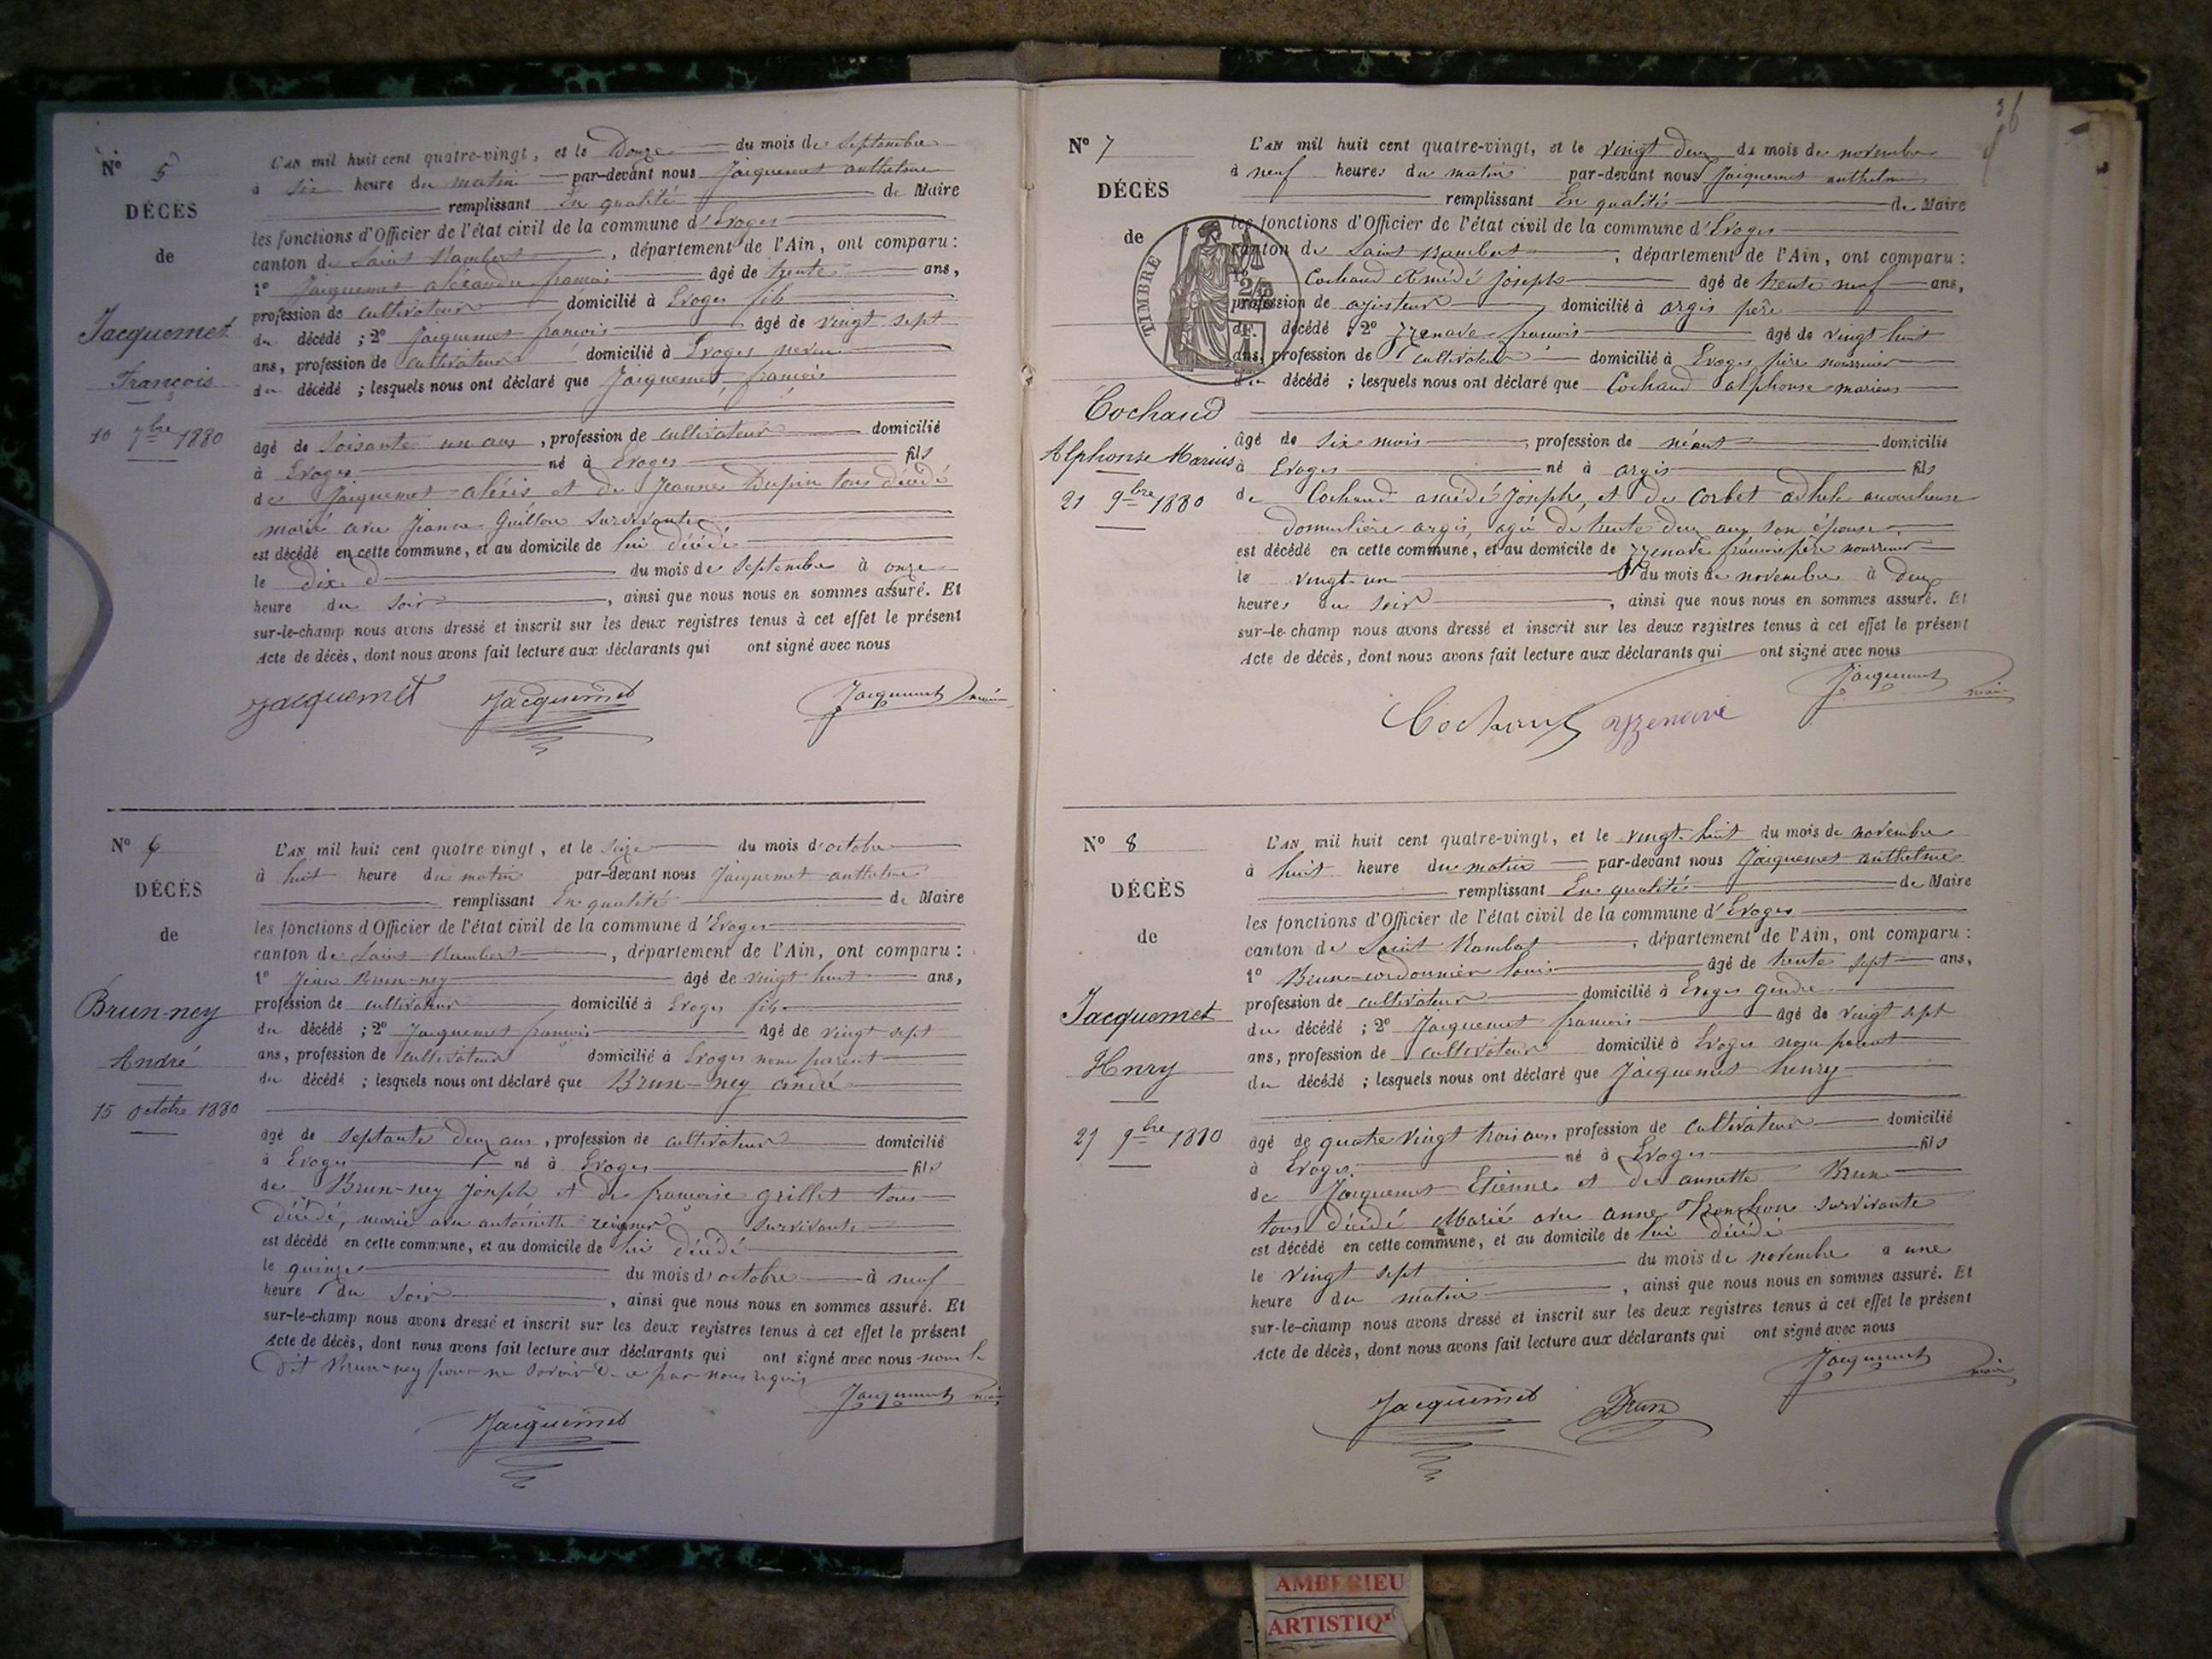 N° 5
DÉCÈS
de
Jacquemet
François
10 7bre 1880
L'AN mil huit cent quatre-vingt, et le Douze du mois de Septembre
à six heure du matin par-devant nous Jacquemet anthelme
remplissant En qualité de Maire
les fonctions d'Officier de l'état civil de la commune d'Evoges
canton de Saint Rambert, département de l'Ain, ont comparu :
1° Jacquemet aléxandre françois âgé de trente ans,
profession de cultivateur domicilié à Evoges fils
du décédé ; 2° Jacquemet françois âgé de vingt sept
ans, profession de cultivateur domicilié à Evoges neveu
du décédé ; lesquels nous ont déclaré que Jacquemet, françois
âgé de soisante un ans, profession de cultivateur domicilié
à Evoges né à Evoges fils
de Jacquemet aléxis et de Jeanne Dupin tous décédé
marié avec Jeanne Guillon survivante
est décédé en cette commune, et au domicile de lui décédé
le dix du mois de Septembre à onze
heure du soir, ainsi que nous nous en sommes assuré. Et
sur-le-champ nous avons dressé et inscrit sur les deux registres tenus à cet effet le présent
Acte de décès, dont nous avons fait lecture aux déclarants qui ont signé avec nous
Jacquemet Jacquemet Jacquemet maire
N° 6
DÉCÈS
de
Brun-ney
André
15 octobre 1880
L'AN mil huit cent quatre vingt, et le seize du mois d'octobre
à huit heure du matin par-devant nous Jacquemet anthelme
remplissant En qualité de Maire
les fonctions d'Officier de l'état civil de la commune d'Evoges
canton de Saint Rambert, département de l'Ain, ont comparu :
1° Jean Brun-ney âgé de vingt huit ans,
profession de cultivateur domicilié à Evoges fils
du décédé ; 2° Jacquemet françois âgé de vingt sept
ans, profession de cultivateur domicilié à Evoges non parent
du décédé ; lesquels nous ont déclaré que Brun-ney andré
âgé de septante deux ans, profession de cultivateur domicilié
à Evoges né à Evoges fils
de Brun-ney Joseph et de françoise Grillet tous
décédé, marié avec antoinette survivante
est décédé en cette commune, et au domicile de lui décédé
le quinze du mois d'octobre à neuf
heure du soir, ainsi que nous nous en sommes assuré. Et
sur-le-champ nous avons dressé et inscrit sur les deux registres tenus à cet effet le présent
Acte de décès, dont nous avons fait lecture aux déclarants qui ont signé avec nous non le
dit Brun-ney pour ne savoir de ce par nous requis
Jacquemet Jacquemet maire
36
N° 7
DÉCÈS
de
TIMBRE
Cochaud
Alphonse Marius
21 9bre 1880
L'AN mil huit cent quatre-vingt, et le vingt deux du mois de novembre
à neuf heures du matin par-devant nous Jacquemet anthelme
remplissant En qualité de Maire
les fonctions d'Officier de l'état civil de la commune d'Evoges
canton de Saint Rambert, département de l'Ain, ont comparu :
Cochaud Amédé Joseph âgé de trente neuf ans,
profession de ajusteur domicilié à argis père
du décédé 2° Yzenave françois âgé de vingt huit
ans, profession de cultivateur domicilié à Evoges père nourricier
du décédé ; lesquels nous ont déclaré que Cochaud alphonse marius
âgé de six mois, profession de néant domicilié
à Evoges né à argis fils
de Cochaud amédé Joseph, et de Corbet adhele accoucheuse
domicilière argis, agé de trente deux ans son épouse
est décédé en cette commune, et au domicile de Yzenave françois père nourricier
le vingt-un du mois de novembre à deux
heures du soir, ainsi que nous nous en sommes assuré. Et
sur-le-champ nous avons dressé et inscrit sur les deux registres tenus à cet effet le présent
Acte de décès, dont nous avons fait lecture aux déclarants qui ont signé avec nous
Cochaud Yzenave Jacquemet maire
N° 8
DÉCÈS
de
Jacquemet
Henry
27 9bre 1880
L'AN mil huit cent quatre-vingt, et le vingt-huit du mois de novembre
à huit heure du matin par-devant nous Jacquemet anthelme
remplissant En qualité de Maire
les fonctions d'Officier de l'état civil de la commune d'Evoges
canton de Saint Rambert, département de l'Ain, ont comparu :
1° Brun-cordonnier louis âgé de trente sept ans,
profession de cultivateur domicilié à Evoges gendre
du décédé ; 2° Jacquemet francois âgé de vingt sept
ans, profession de cultivateur domicilié à Evoges non parent
du décédé ; lesquels nous ont déclaré que Jacquemet henry
âgé de quatre vingt trois ans, profession de cultivateur domicilié
à Evoges né à Evoges fils
de Jacquemet Etienne et de annette Brun
tous décédé Marié avec anne survivante
est décédé en cette commune, et au domicile de lui décédé
le vingt sept du mois de novembre à une
heure du matin, ainsi que nous nous en sommes assuré. Et
sur-le-champ nous avons dressé et inscrit sur les deux registres tenus à cet effet le présent
Acte de décès, dont nous avons fait lecture aux déclarants qui ont signé avec nous
Jacquemet Brun Jacquemet maire
AMBERIEU
ARTISTIQ